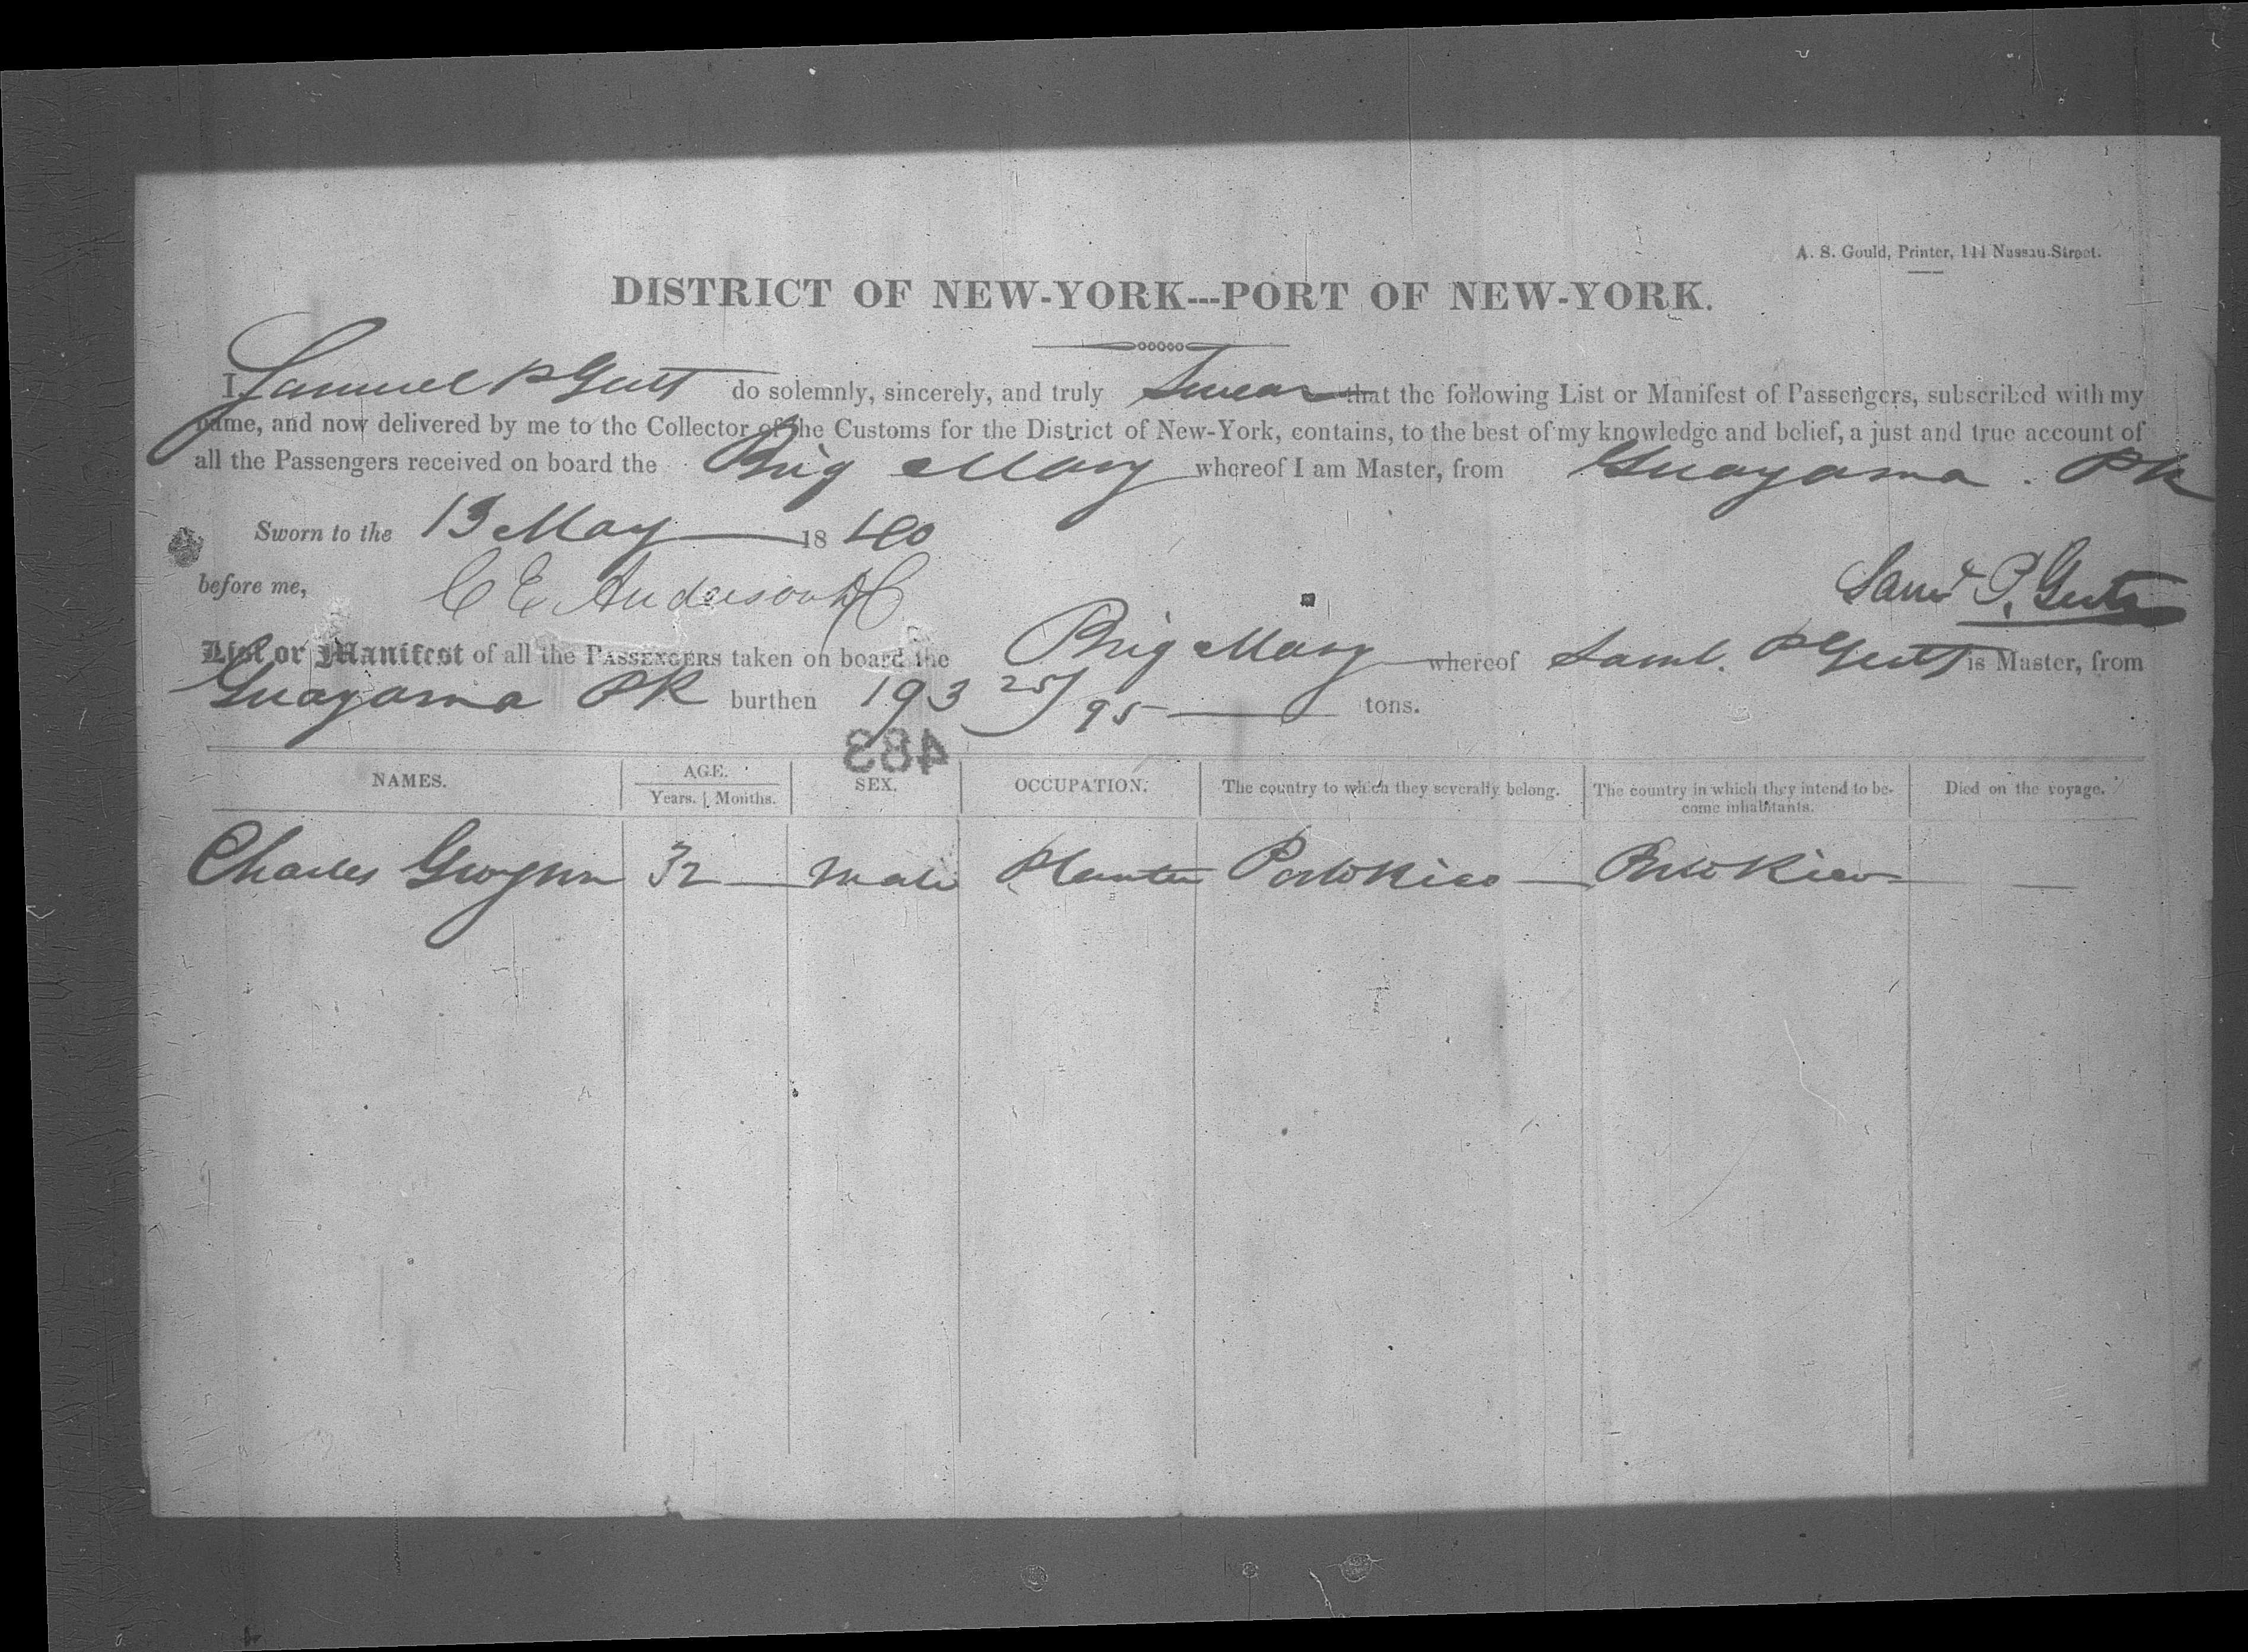 A. S. Gould, Printer, 144 Nassau-Street.
DISTRICT OF NEW-YORK---PORT OF NEW-YORK.
I Samuel P do solemnly, sincerely, and truly Swear that the following List or Manifest of Passengers, subscribed with my
name, and now delivered by me to the Collector of the Customs for the District of New-York, contains, to the best of my knowledge and belief, a just and true account of
all the Passengers received on board the Brig Mary whereof I am Master, from Guayama . PR
Sworn to the 13 May 1840
before me, C E Anderson DC
Saml P.
List or Manifest of all the PASSENGERS taken on board the Brig Mary whereof Saml. P is Master, from
Guayama PR burthen 193 25/95 tons.
483
NAMES. AGE. SEX. OCCUPATION. The country to which they severally belong. The country in which they intend to be- Died on the voyage.
Years. Months. come inhabitants.
Charles Gwynn 32 Male Planter Porto Rico Porto Rico